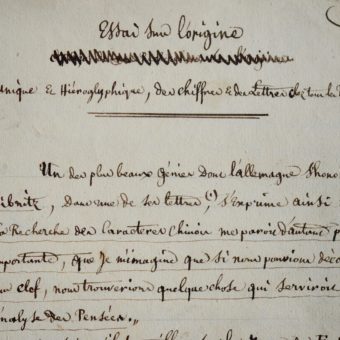 Essai sur l'origine
unique & Hiéroglyphique, des chiffres & des Lettres chez tous les
Un des plus beaux génies dont l'allemagne s'hono
eibnitz, dans une de ses lettres, (1) s'exprime ainsi
la Recherche des Caracteres Chinois me paroit d'autant p
mportante, que Je m'imagine que si nous pouvions déco
ur clef, nous trouverions quelque chose qui serviroit
analyse des Pensées. „